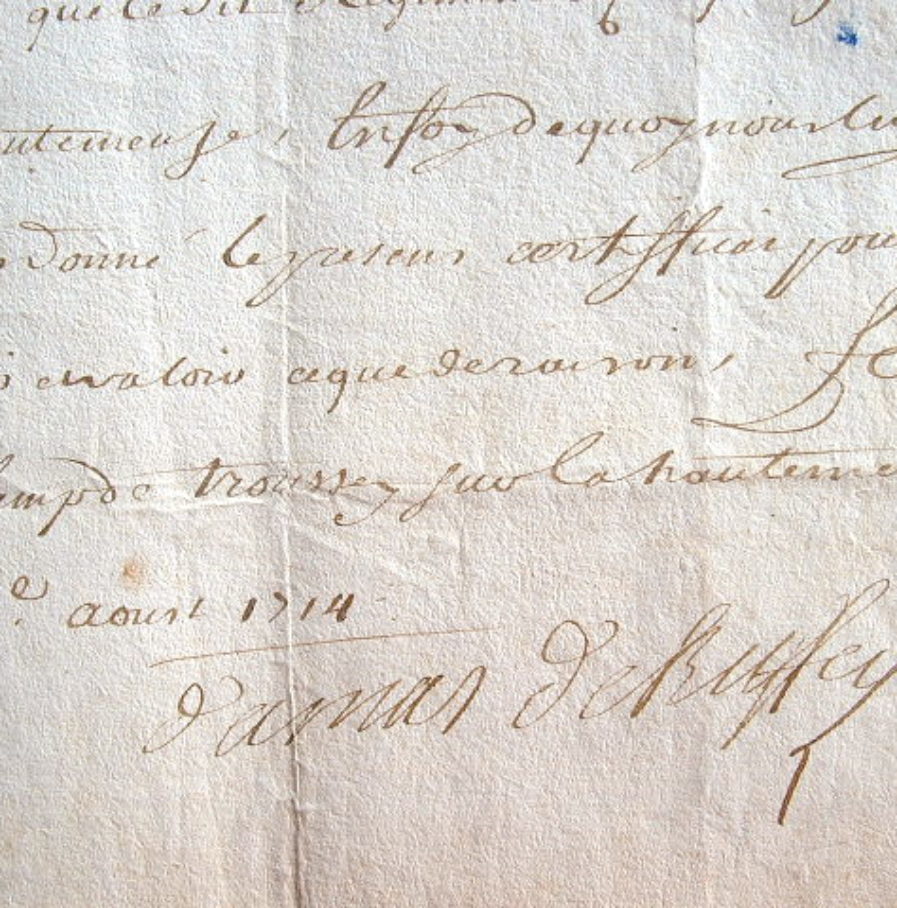 que le dit Regiment
autemeuse, En foy de quoy nous lu
donné le present certifficat pour
envaloir ce que de raison,
camp de troussey sur la hautemeu
e aoust 1714
damas de Ruffey